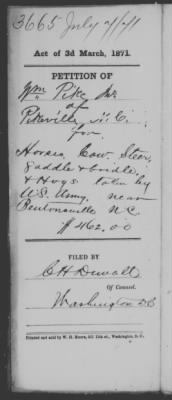 3665 July 7/71
Act of 3d March, 1871.
PETITION OF
Wm Pike Sr.
of
Pikeville, N. C.
for
Horses, Cow, Steer,
Saddle & bridle,
& Hogs taken by
U.S. Army, near
Bentonsville NC
$462.00
FILED BY
C H Duvall
Of Counsel.
Washington DC
Printed and sold by W. H. Moore, 511 11th st., Washington, D. C.